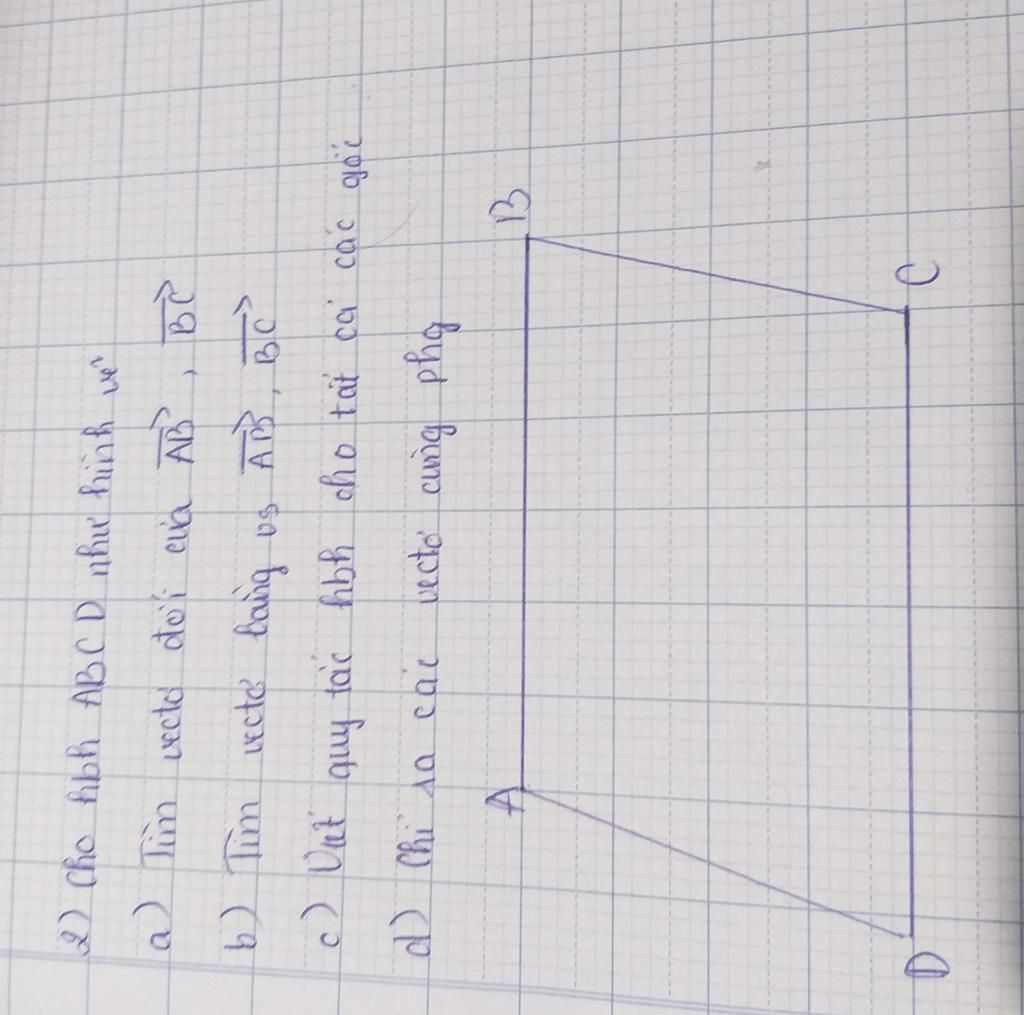 2) Cho hbh ABCD như hình vẽ
a) Tìm vectơ đối của AB, BC
b) Tìm vectơ bằng vs AB, BC
c) Viết quy tắc hbh cho tất cả các gốc
d) Chỉ ra các vectơ cùng phg
A
B
D
C